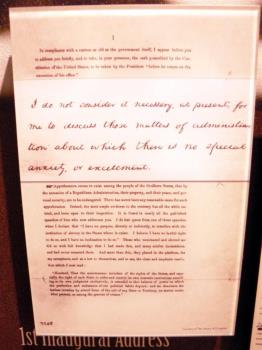 1
In compliance with a custom as old as the government itself, I appear before you
to address you briefly, and to take, in your presence, the oath prescribed by the Con-
stitution of the United States, to be taken by the President "before he enters on the
execution of his office."
I do not consider it necessary, at present, for
me to discuss those matters of administra-
tion about which there is no special
anxiety, or excitement.
Apprehension seems to exist among the people of the Southern States, that by
the accession of a Republican Administration, their property, and their peace, and per-
sonal security, are to be endangered. There has never been any reasonable cause for such
apprehension. Indeed, the most ample evidence to the contrary has all the while ex-
isted, and been open to their inspection. It is found in nearly all the published
speeches of him who now addresses you. I do but quote from one of those speeches
when I declare that "I have no purpose, directly or indirectly, to interfere with the
institution of slavery in the States where it exists. I believe I have no lawful right
to do so, and I have no inclination to do so." Those who nominated and elected me
did so with full knowledge that I had made this, and many similar declarations,
and had never recanted them. And more than this, they placed in the platform, for
my acceptance, and as a law to themselves, and to me, the clear and emphatic resolu-
tion which I now read:
"Resolved, That the maintenance inviolate of the rights of the States, and espe-
cially the right of each State to order and control its own domestic institutions accord-
ing to its own judgment exclusively, is essential to that balance of power on which
the perfection and endurance of our political fabric depend; and we denounce the
lawless invasion by armed force of the soil of any State or Territory, no matter under
what pretext, as among the gravest of crimes."
Courtesy of The Library of Congress
1st Inaugural Address